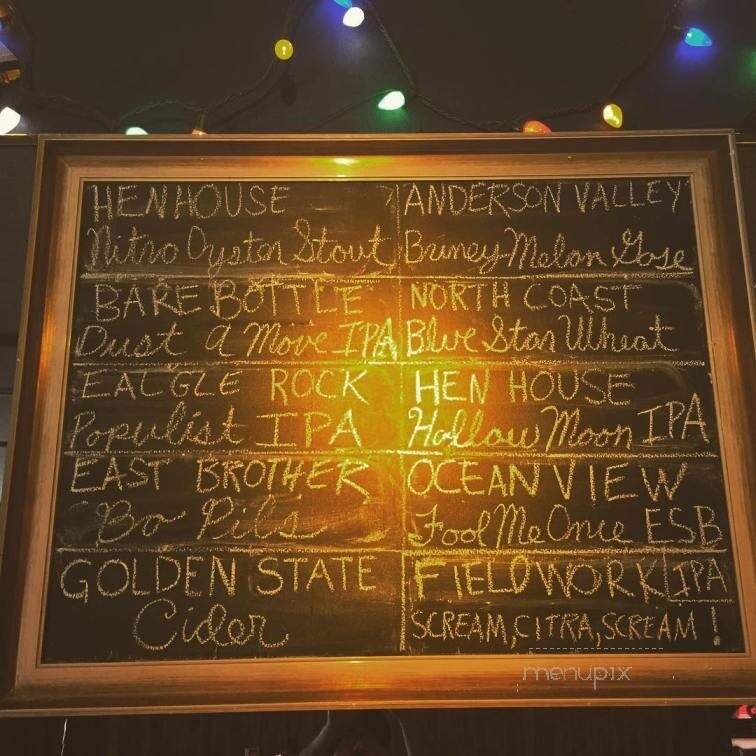 HENHOUSE
Nitro Oyster Stout
BARE BOTTLE
Dust A Move IPA
EALGLE ROCK
Populist IPA
EAST BROTHER
Bo Pils
GOLDEN STATE
Cider
ANDERSON VALLEY
Briney Melon Gose
NORTH COAST
Blue Star Wheat
HEN HOUSE
Hollow Moon IPA
OCEAN VIEW
Fool Me Once ESB
FIELDWORK IPA
SCREAM, CITRA, SCREAM!
menupix